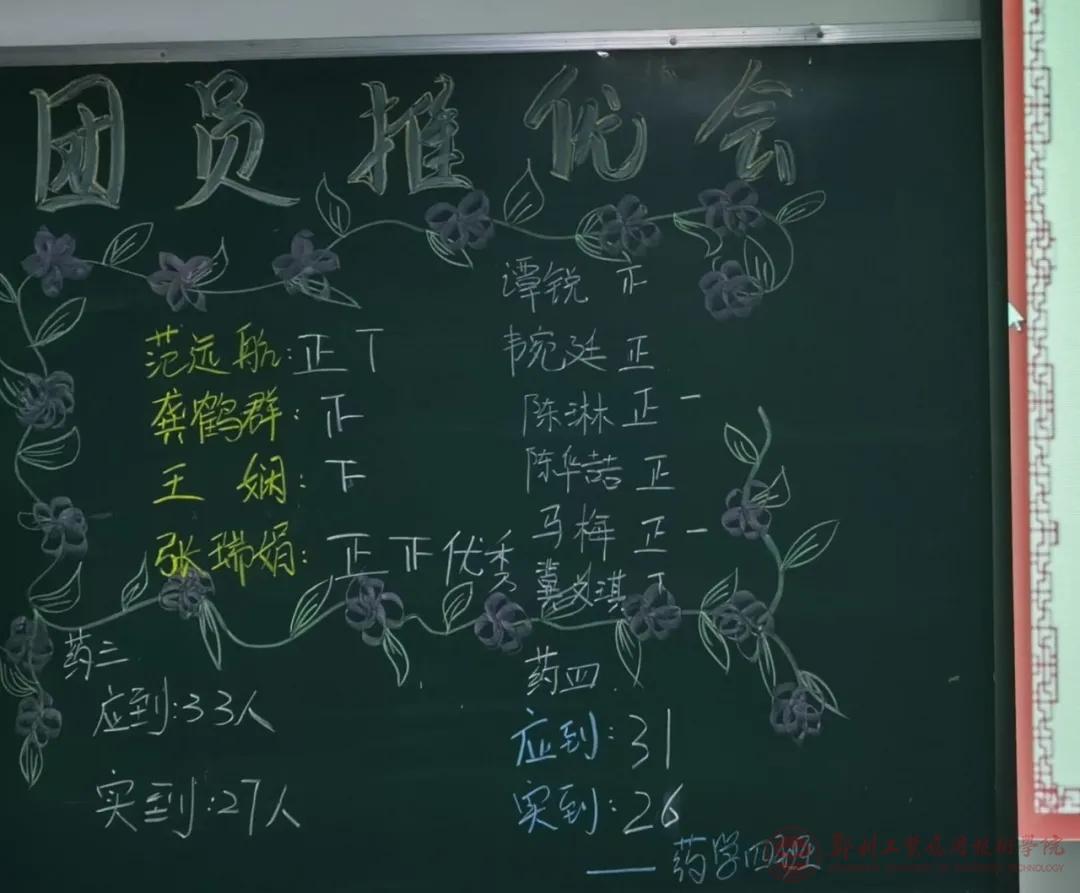 团员推优会
范远航：正丅
龚鹤群：正
王娴：下
张瑞娟：正正优秀
谭锐 正
韦宛廷 正
陈淋 正一
陈华喆 正
马梅 正一
冀文琪 丅
药三
应到：33人
实到：27人
药四
应到：31
实到：26
——药学四班